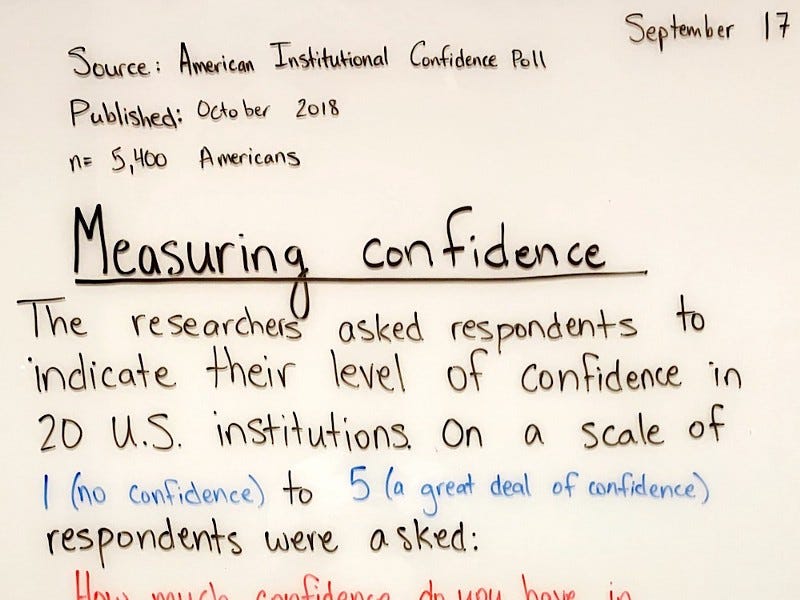 September 17
Source: American Institutional Confidence Poll
Published: October 2018
n= 5,400 Americans
Measuring confidence
The researchers asked respondents to
indicate their level of confidence in
20 U.S. institutions. On a scale of
1 (no confidence) to 5 (a great deal of confidence)
respondents were asked:
How much confidence do you have in